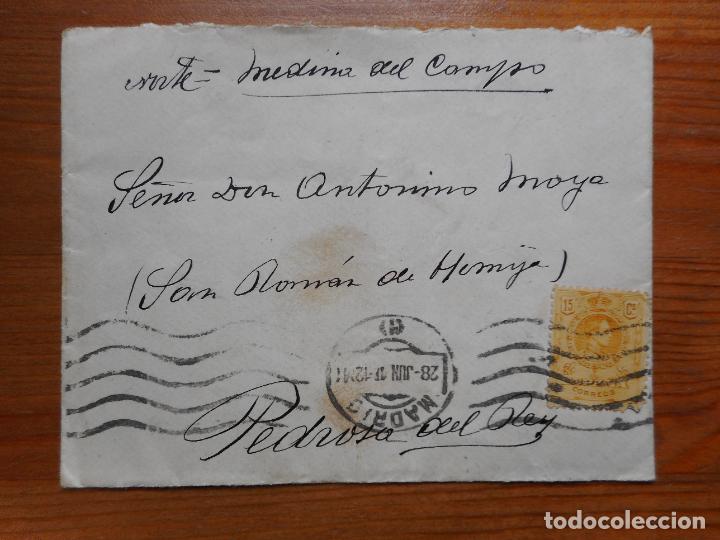 Norte = Medina del Campo
Señor Don Antonino Moya
(San Román de Hornija)
15 Cs
CORREOS
(1)
28-JUN 1
MADRID
Pedrosa del Rey
todocoleccion
todocoleccion.net